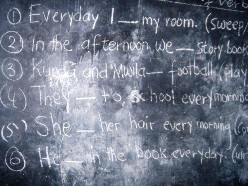 ① Everyday I __ my room. (sweep/
② In the afternoon we __ story book
③ and __ football (
(4) They __ to school every morning
(5) She __ her hair every morning. (
⑥ He __ in the book everyday. (